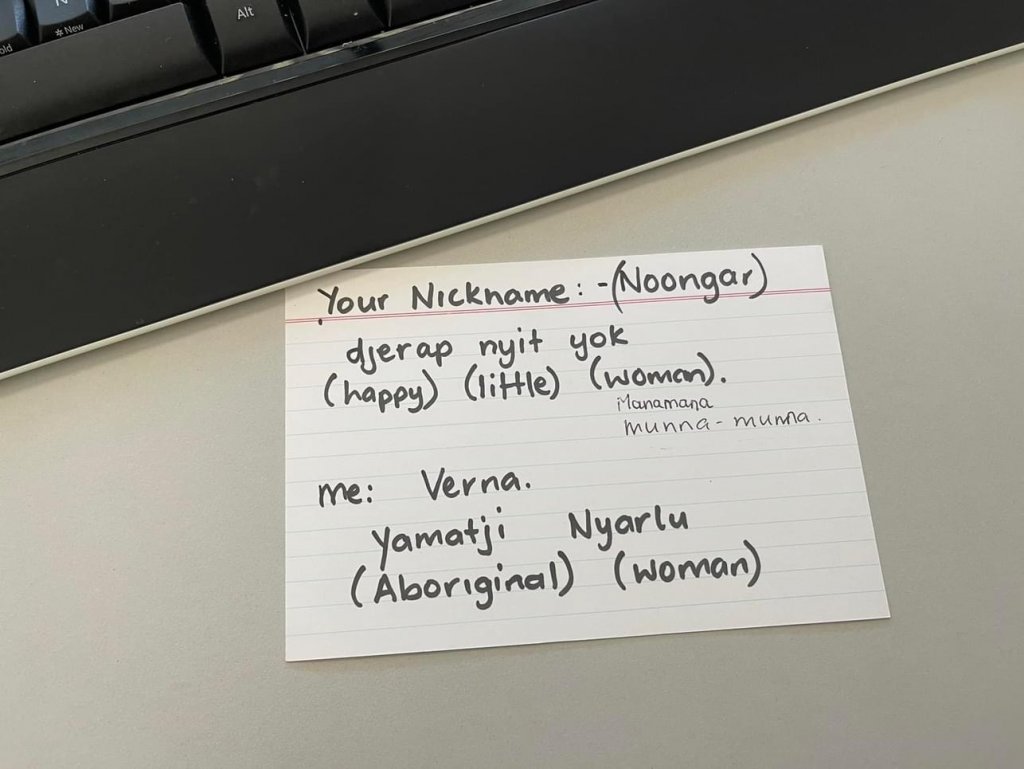 N
* New
old
Alt
Your Nickname: - (Noongar)
djerap nyit yok
(happy) (little) (woman).
Manamana
munna - munna.
me: Verna.
Yamatji Nyarlu
(Aboriginal) (woman)